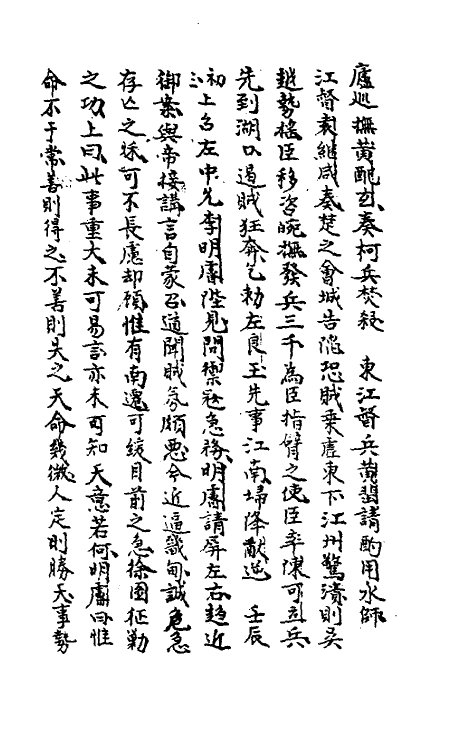 廬巡撫黃配玄奏柯兵焚殺　東江督兵黃蜚請酌用水師
江督袁繼咸奏楚之會城告陷恐賊乘虛東下江州驚潰則吳
越勢搖臣移咨皖撫發兵三千為臣指臂之使臣率陳可立兵
先到湖口遏賊狂奔乞勅左良玉先事江南埽降獻逆　壬辰
初上召左中允李明睿陛見問禦寇急務明睿請屏左右趨近
御案與帝接講言自蒙召道聞賊氛頗惡今近逼畿甸誠危急
存亡之秋可不長慮却顧惟有南遷可緩目前之急徐圖征勦
之功上曰此事重大未可易言亦未可知天意若何明睿曰惟
命不于常善則得之不善則失之天命幾微人定則勝天事勢